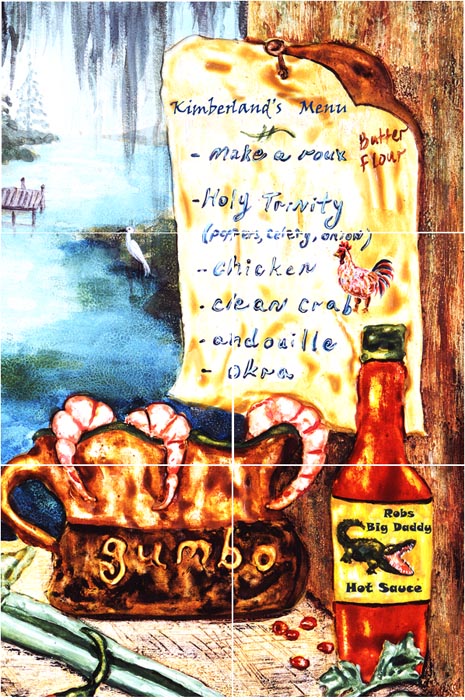 Kimberland's Menu
- make a roux
Butter
Flour
- Holy Trinity
(peppers, celery, onion)
- chicken
- clean crab
- andouille
- okra
gumbo
Robs
Big Daddy
Hot Sauce